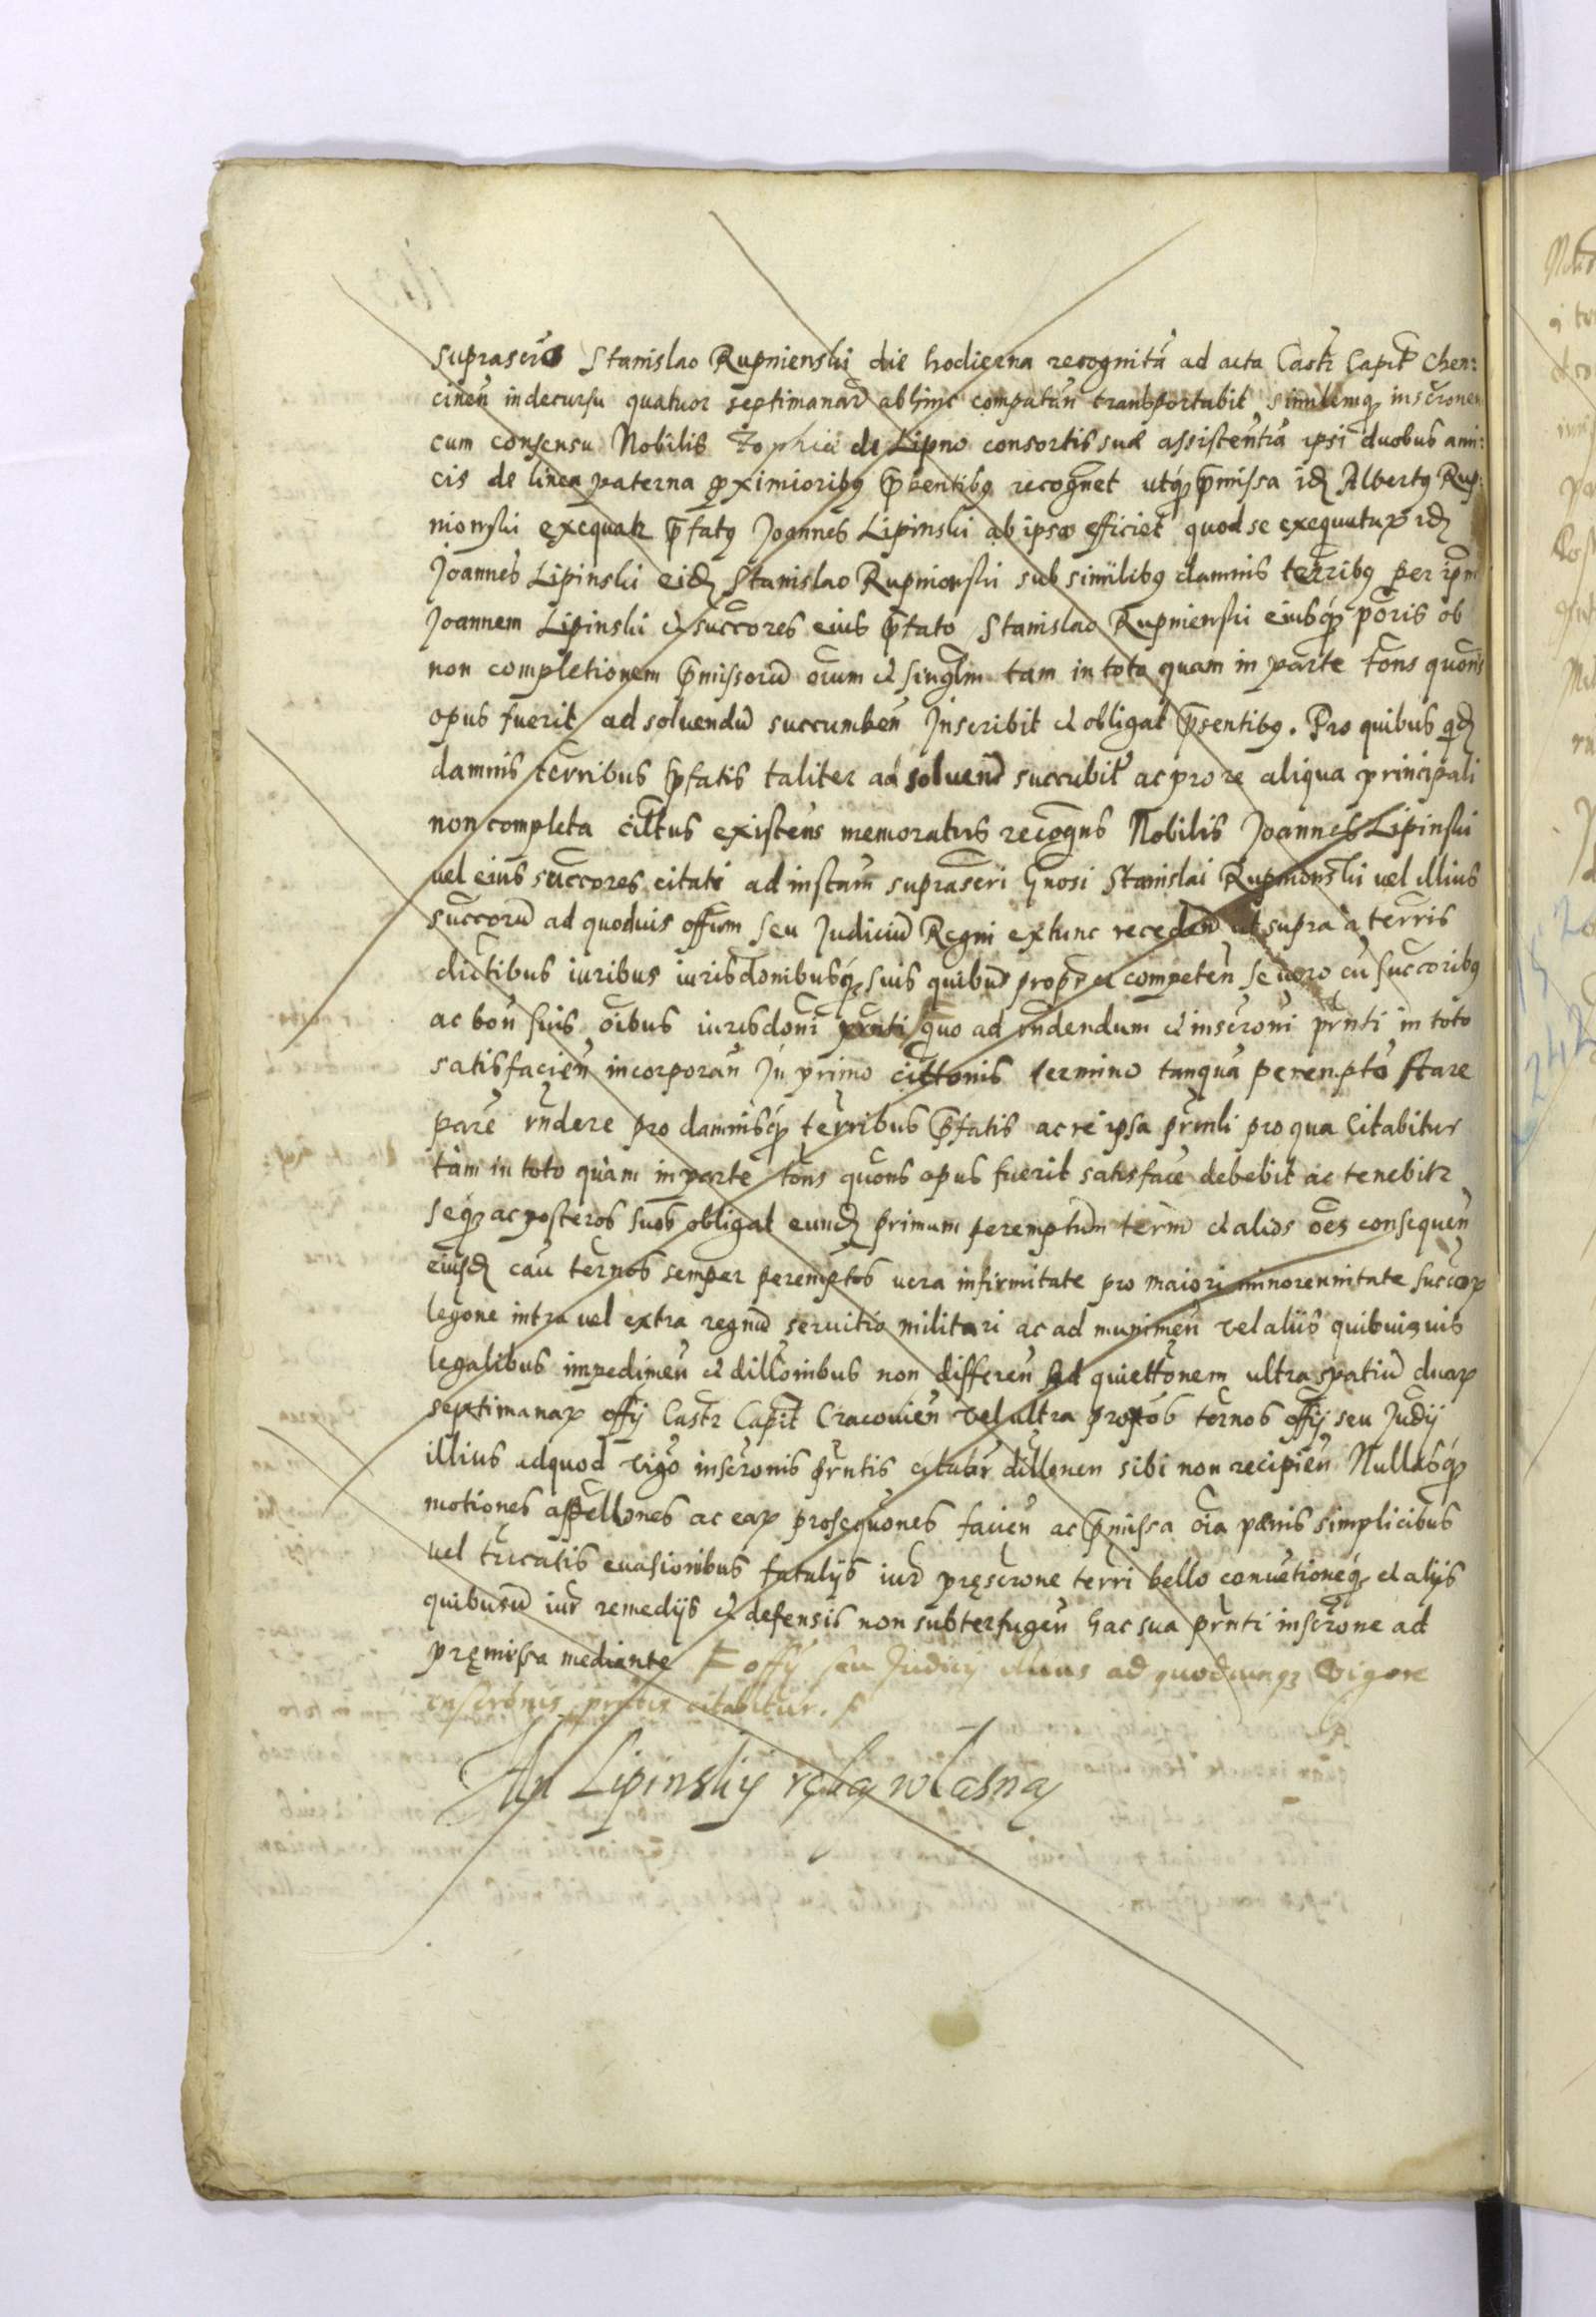 suprascrō Stanislao Rupnienski die hodierna recognitā ad acta Castr̄ Capit̄ Chen:
cineñ in decursu quatuor septimanarū abhinc computañ transportabit, similemq; inscr̄onem
cum consensu Nobilis Zophiæ de Lipno consortis suæ assistentia ipsi duobus ami:
cis de linea paterna p̱ximioribꝯ p̄bentibꝯ recognēt utq́; p̄missa idꝫ Albertꝯ Rup:
nionski exequatr p̄fatꝯ Joannes Lipinski ab ipso efficiet quod se exequutuꝝ idꝫ
Joannes Lipinski eidꝫ Stanislao Rupnionski sub similibꝯ damnis terribꝯ per ip̄m
Joannem Lipinski et succ̄ores eius p̄fato Stanislao Rupnienski eiusq́; pōris ob
non completionem p̄missorū oīum et singl̄m tam in toto quam in parte tōns quōns
opus fuerit ad solvendū succumbeñ Inscribit et obligat p̄sentibꝯ. Pro quibus qdꝫ
damnis terribus p̄fatis taliter ad solvend̄ succūbit̄ ac pro re aliqua principali
non completa cit̄tus existens memoratus recogn̄s Nobilis Joannes Lipinski
vel eius succ̄ores citati ad instam̄ suprascri Gn̄osi Stanislai Rupnionski vel illius
succ̄orū ad quodvis off̄ium seu Judiciū Regni extunc recedeñ ut supra a terris
distictibus iuribus iurisdōnibusq́; suis quibusꝫ propr̄ et competeñ se vero cū succ̄oribꝯ
ac boñ suis oībus iurisdōni prn̄ti quo ad rn̄dendum et inscr̄oni prn̄ti in toto
satisfacieñ incorporañ In primo cit̄tonis termino tanquā peremptō stare
parē rn̄dere pro damnisq́; terribus p̄fatis ac re ipsa prin̄li pro qua citabitur
tàm in toto quàm in parte tōns quōns opus fuerit satisfacē debebit ac tenebitr
seq́; ac posteros suos obligat eundꝫ primum peremptūm term̄ et alios oēs consequeñ
eiusdꝫ caū ter̄nos semper peremptōs vera infirmitate pro maiori minorennitate succoꝝ
leg̃one intra vel extra regnū servitio militari ac ad munimeñ vel aliis quibusvis
legalibus impedimeñ et dill̄onibus non differeñ Ad quiett̄onem ultra spatiū duaꝝ
septimanaꝝ off̄y Castr̄ Capit̄ Cracovieñ vel ultra proxōs ter̄nos off̄y seu Judȳ
illius ad quod vigō inscr̄onis prn̄tis citabr̄ dill̄onen sibi non recipieñ Nullasq́;
motiones appell̄ones ac eaꝝ prosequōnes facieñ ac p̄missa oīa pænis simplicibus
vel tricatis evasionibus fatalijs iur̄ pręscr̄one terri bello conuētioneq́; et alijs
quibusuꝫ iur̄ remedijs et defensis non subterfugeñ hac sua prn̄ti inscr̄one ad
pręmissa mediante F off̄y seu Judicij illius ad quodcunqꝫ vigore
inscr̄onis prn̄tis citabitur. F
Jan Lipinskij ręką własną